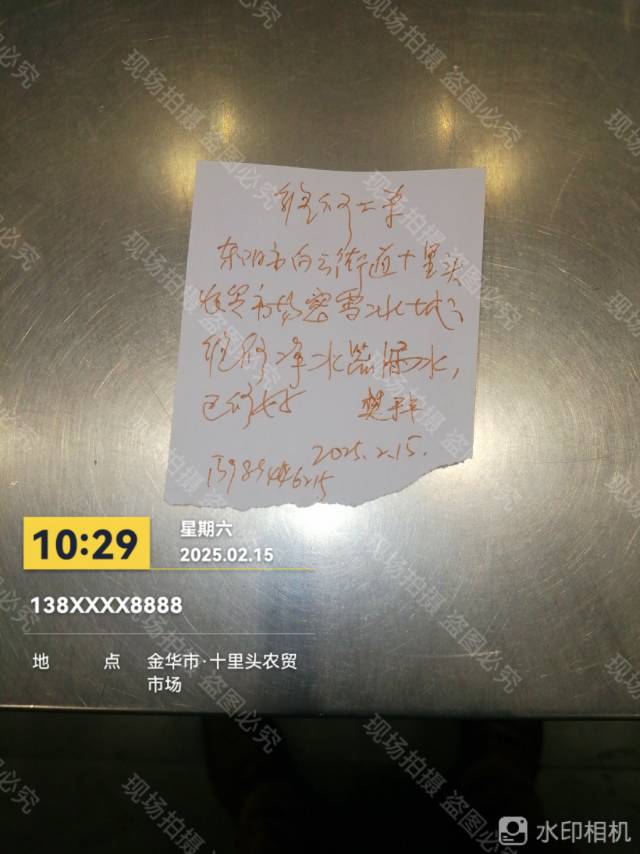 维修单
东阳市白云街道十里头
农贸市场蜜雪冰城
维修净水器漏水,
已修好 樊
2025.2.15.
10:29
星期六
2025.02.15
138XXXX8888
地 点 金华市·十里头农贸
市场
水印相机
现场拍摄 盗图必究